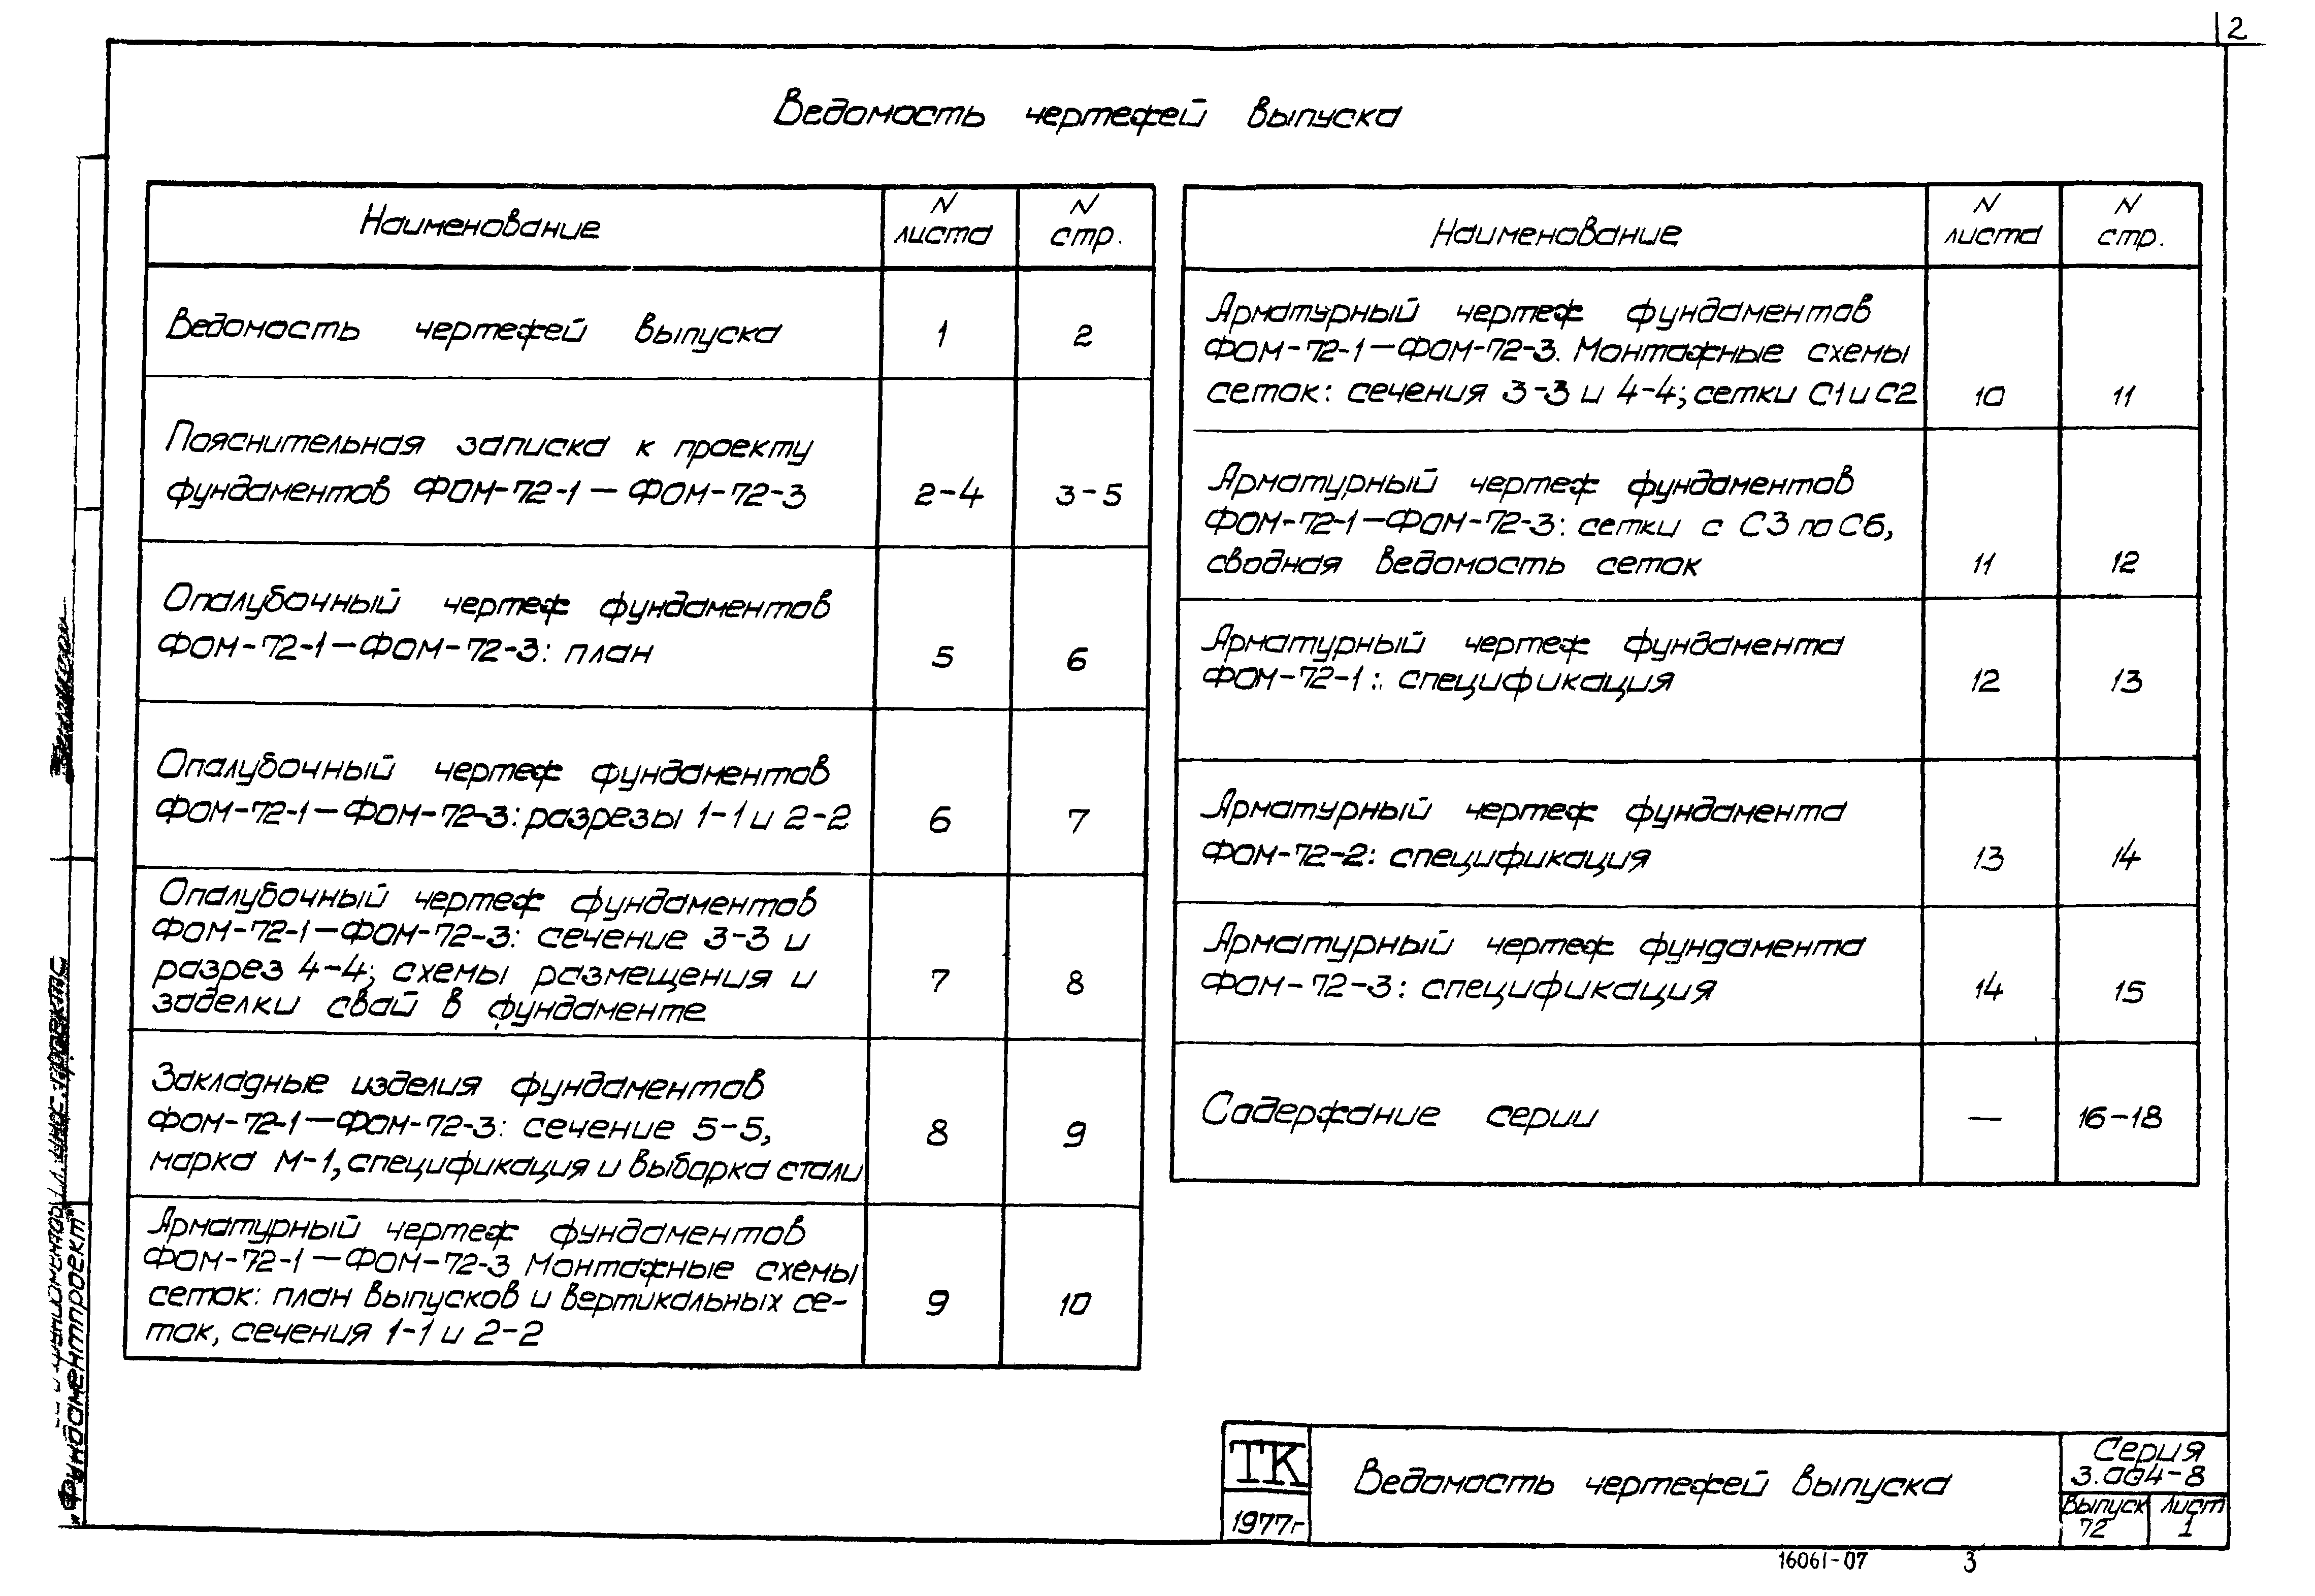 2
Ведомость чертежей выпуска
Наименование
N листа
N стр.
Ведомость чертежей выпуска
1
2
Пояснительная записка к проекту
фундаментов ФОМ-72-1 — ФОМ-72-3
2-4
3-5
Опалубочный чертеж фундаментов
ФОМ-72-1—ФОМ-72-3: план
5
6
Опалубочный чертеж фундаментов
ФОМ-72-1—ФОМ-72-3: разрезы 1-1 и 2-2
6
7
Опалубочный чертеж фундаментов
ФОМ-72-1—ФОМ-72-3: сечение 3-3 и
разрез 4-4; схемы размещения и
заделки свай в фундаменте
7
8
Закладные изделия фундаментов
ФОМ-72-1—ФОМ-72-3: сечение 5-5,
марка М-1, спецификация и выборка стали
8
9
Арматурный чертеж фундаментов
ФОМ-72-1—ФОМ-72-3 Монтажные схемы
сеток: план выпусков и вертикальных се-
ток, сечения 1-1 и 2-2
9
10
Наименование
N листа
N стр.
Арматурный чертеж фундаментов
ФОМ-72-1—ФОМ-72-3. Монтажные схемы
сеток: сечения 3-3 и 4-4; сетки С1 и С2
10
11
Арматурный чертеж фундаментов
ФОМ-72-1—ФОМ-72-3: сетки с С3 по С6,
сводная ведомость сеток
11
12
Арматурный чертеж фундамента
ФОМ-72-1: спецификация
12
13
Арматурный чертеж фундамента
ФОМ-72-2: спецификация
13
14
Арматурный чертеж фундамента
ФОМ-72-3: спецификация
14
15
Содержание серии
—
16-18
"Фундаментпроект"
ТК
1977г
Ведомость чертежей выпуска
Серия
3.004-8
Выпуск
72
Лист
1
16061-07
3